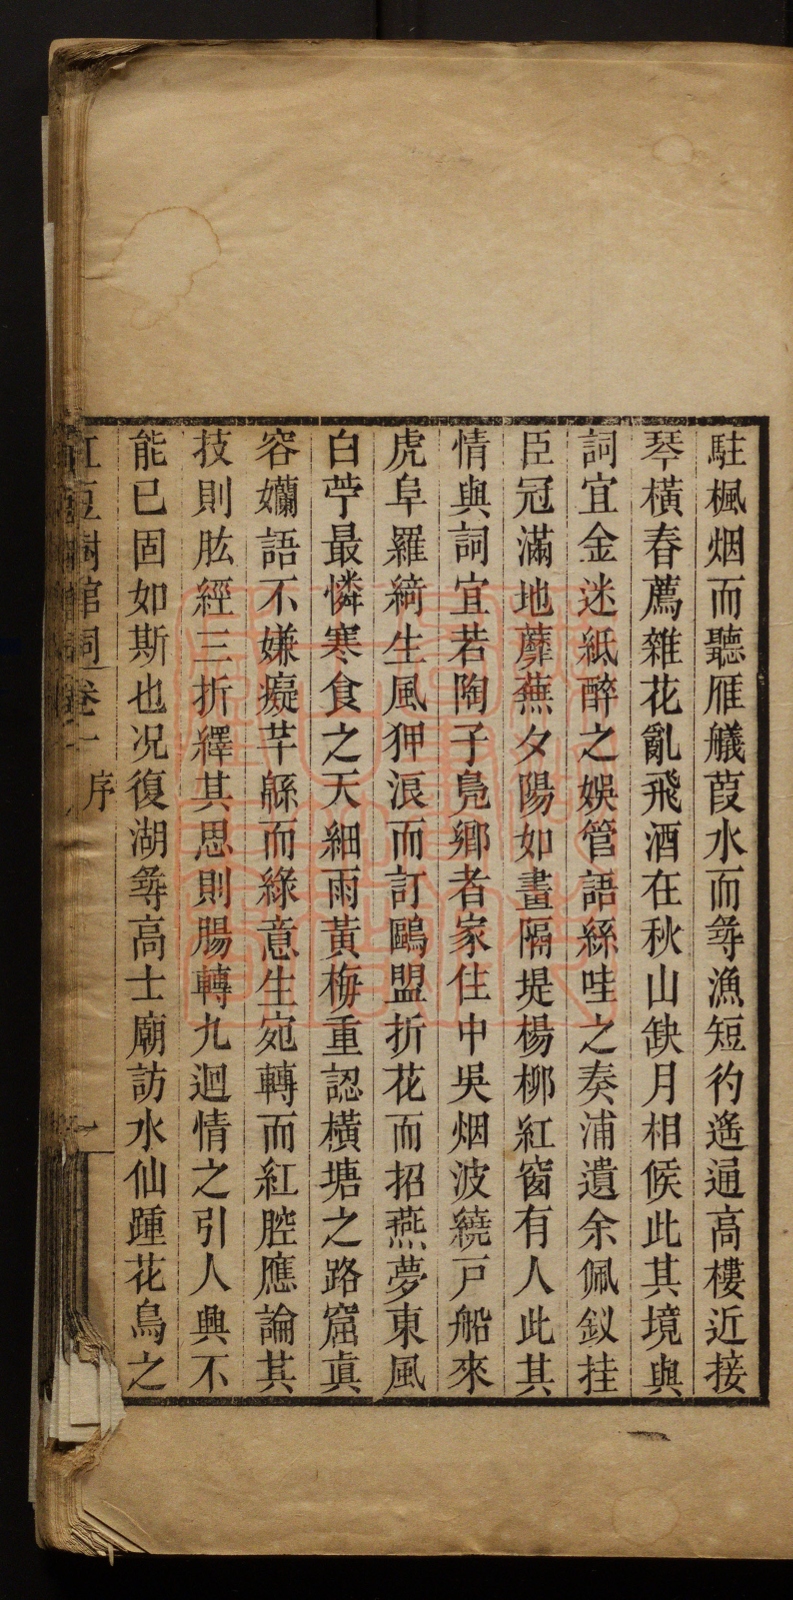 駐楓烟而聽雁艤葭水而尋漁短彴遙通高樓近接
琴橫春薦雜花亂飛酒在秋山缺月相候此其境與
詞宜金迷紙醉之娛管語絲哇之奏浦遺余佩釵挂
臣冠滿地蘼蕪夕陽如畫隔堤楊柳紅窗有人此其
情與詞宜若陶子鳧鄉者家住中吳烟波繞戸船來
虎阜羅綺生風狎浪而訂鷗盟折花而招燕夢東風
白苧最憐寒食之天細雨黃梅重認橫塘之路窟眞
容孏語不嫌癡芊緜而綠意生宛轉而紅腔應論其
技則肱經三折繹其思則腸轉九迴情之引人興不
能已固如斯也况復湖尋高士廟訪水仙踵花鳥之
紅豆樹館詞卷一 序 一